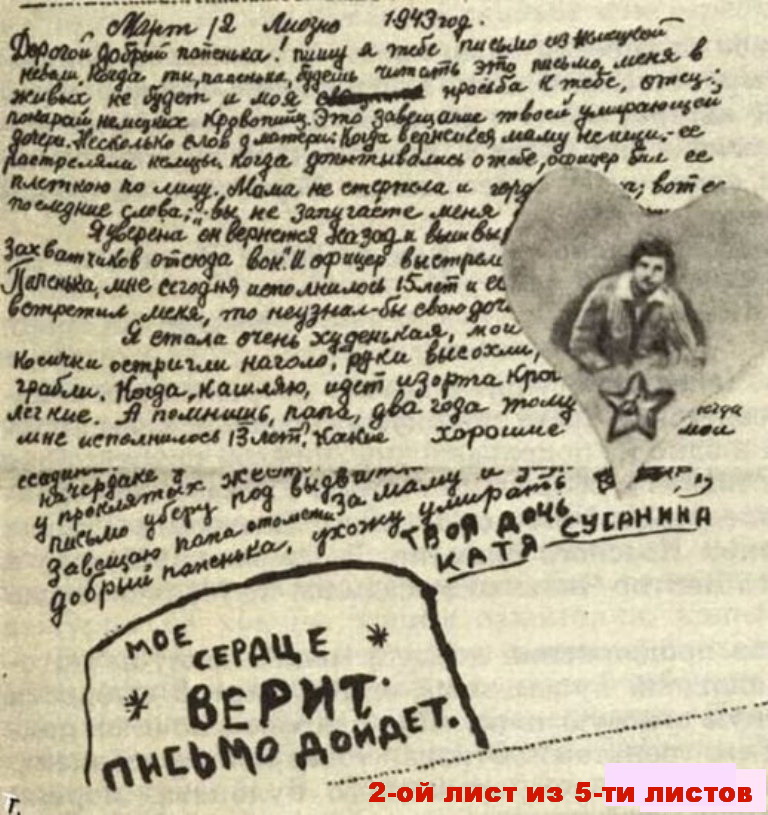 Март 12 Лиозно 1943 год.
Дорогой добрый папенька! пишу я тебе письмо из немецкой
неволи. Когда ты, папенька, будешь читать это письмо, меня в
живых не будет и моя просьба к тебе, отец;
покарай немецких кровопийц. Это завещание твоей умирающей
дочери. Несколько слов о матери: Когда вернешься маму не ищи.- ее
растреляли немцы. Когда допытывались о тебе, офицер бил ее
плеткою по лицу. Мама не стерпела и горд а; вот ее
последние слова; "вы не запугаете меня
Я уверена он вернется назад и вышвыр
захватчиков отсюда вон." И офицер выстрел
Папенька, мне сегодня исполнилось 15 лет и ес
встретил меня, то неузнал-бы свою доч
Я стала очень худенькая, мои
косички остригли наголо, руки высохли,
грабли. Когда кашляю, идет изо рта кро
легкие. А помнишь, папа, два года тому когда
мне исполнилось 13 лет? Какие хорошие мои
на чердаке
у проклятых жест
письмо уберу под выдвит
Завещаю папа отомсти за маму и
добрый папенька, ухожу умирать
ТВОЯ ДОЧЬ
КАТЯ СУСАНИНА
МОЕ
СЕРДЦЕ
ВЕРИТ:
ПИСЬМО ДОЙДЕТ.
2-ой лист из 5-ти листов
г.